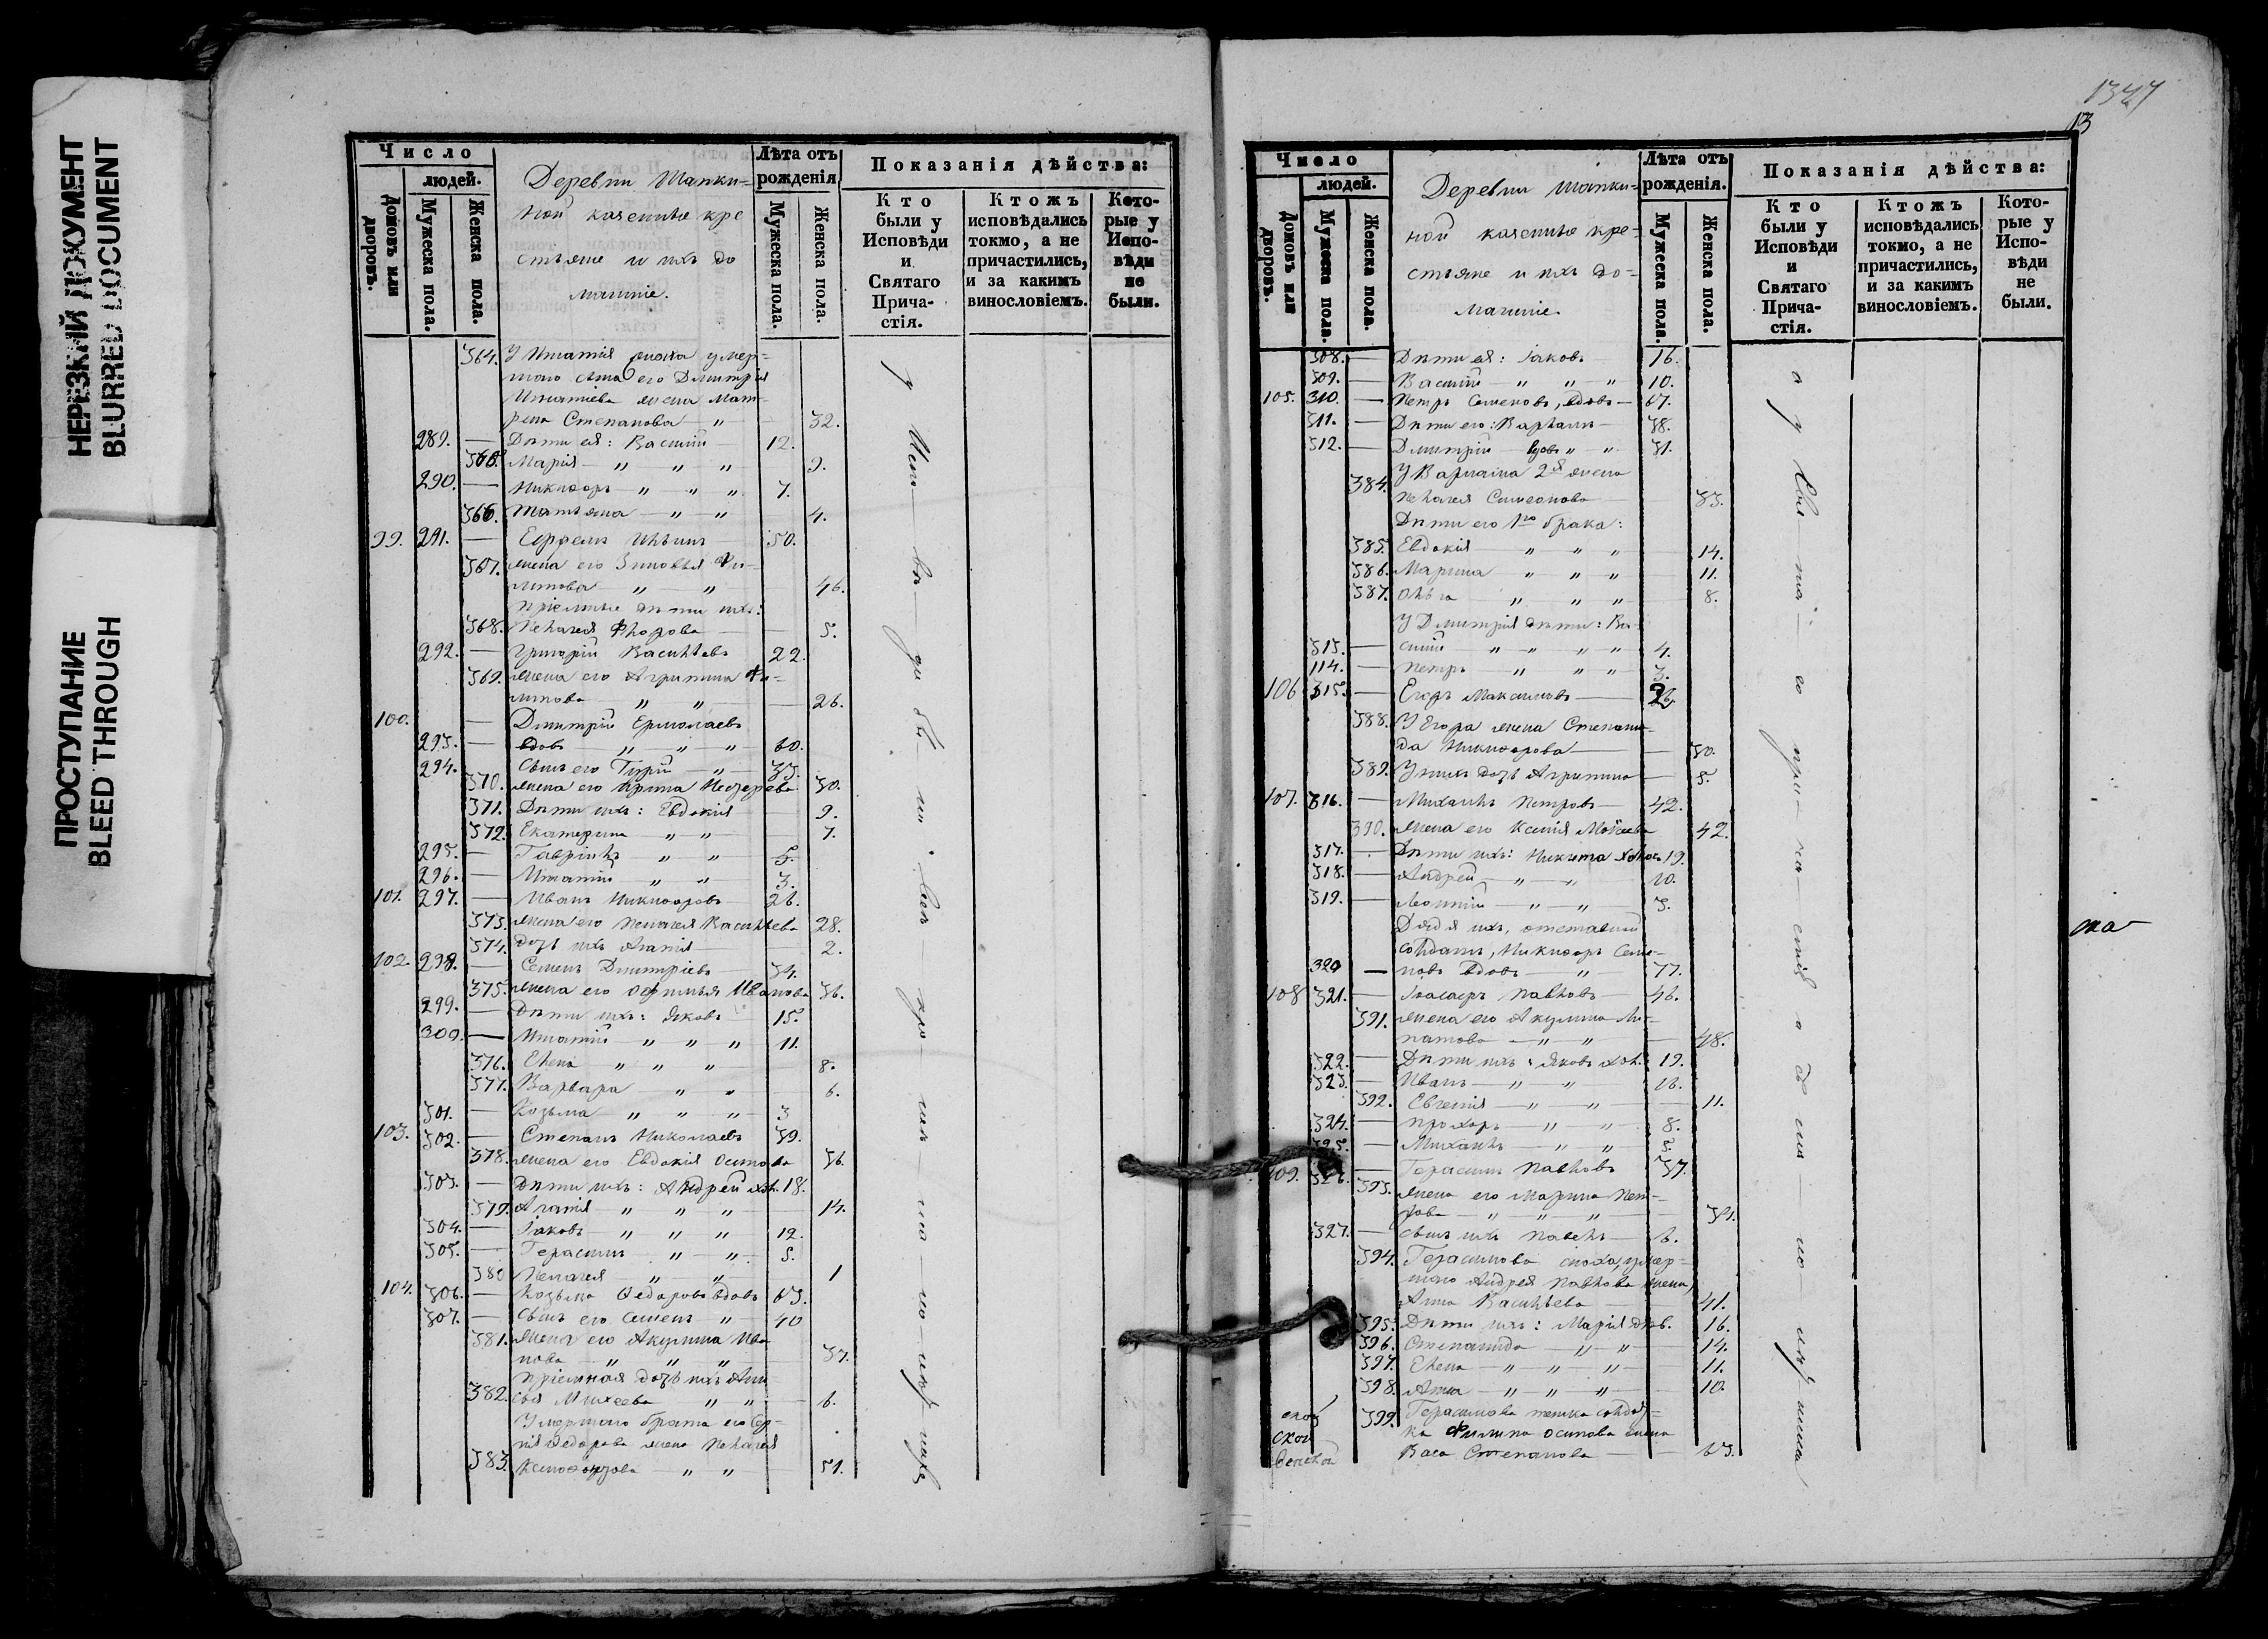 НЕРЕЗКИЙ ДОКУМЕНТ
BLURRED DOCUMENT
ПРОСТУПАНИЕ
BLEED THROUGH
Число
людей.
Домовъ или дворовъ.
Мужеска пола.
Женска пола.
Деревни Шапки-
ной казенные кре
стьяне и ихъ до
машніе.
Лѣта отъ рожденія
Мужеска пола.
Женска пола.
Показанія дѣйства:
Кто были у Исповѣди и Святаго Прича-стія.
Ктожъ исповѣдались токмо, а не причастились, и за какимъ винословіемъ.
Кото-рые у Испо-вѣди не были.
364. У Игнатія сноха умер-
шаго сына его Дмитрія
Игнатіева жена Мат-
рена Степанова — 32.
289. — Дѣти ея: Василій — 12.
365. Марія — " " " 9.
290. — Никифоръ — " " " 7.
366. Татьяна — " " 4.
99. 291. — Ефремъ Ильинъ — 50.
367. жена его Зиновья Фи-
липова — " " 46.
пріемные дѣти ихъ:
368. Пелагея Флорова — 5.
292. — Григорій Васильевъ 22.
369. жена его Агрипина Фи-
липова " " — 26.
100. — Дмитрій Ермолаевъ
293. — вдовъ — " " " 60.
294. Сынъ его Гурій — " — 33.
370. жена его Ирина Нестерева 30.
371. Дѣти ихъ: Евдокия — 9.
372. Екатерина " " — 7.
295. — Гавріилъ " " 5.
296. — Игнатій " " 3.
101. 297. — Иванъ Никифоровъ — 26.
373. жена его Пелагея Васильева 28.
374. дочь ихъ Агапія — 2.
102. 298. — Семенъ Дмитріевъ — 34.
375. жена его Офимья Иванова 36.
299. — Дѣти ихъ: Яковъ 15.
300. — Игнатій " " " 11.
376. Елена " " " 8.
377. Варвара " " — 6.
301. — Козьма " " " 3
103. 302. — Степанъ Николаевъ 39.
378. жена его Евдокія Осипова 36.
303. — Дѣти ихъ: Андрей хол. 18.
379. Агапія " " " 14.
304. — Іаковъ " " " 12.
305. — Герасимъ " " 5.
380 Пелагея " " 1
104. 306. — Козьма Федоровъ вдовъ 63.
307. — Сынъ его Семенъ " 40
381. жена его Акулина Ива
нова — " " " 37.
пріемная дочь ихъ Ани-
382. сья Михеева — " " 6.
Умершаго брата его Сер-
гія Федорова жена Пелагея
383. Ксенофонтова — " " 51.
1347
13
Число
людей.
Домовъ или дворовъ.
Мужеска пола.
Женска пола.
Деревни Шапки-
ной казенные кре-
стьяне и ихъ до-
машніе.
Лѣта отъ рожденія.
Мужеска пола.
Женска пола.
Показанія дѣйства:
Кто были у Исповѣди и Святаго Прича-стія.
Ктожъ исповѣдались токмо, а не причастились, и за какимъ винословіемъ.
Кото-рые у Испо-вѣди не были.
308. — Дѣти ея: Іаковъ 16.
309. — Василій — " " " 10.
105. 310. — Петръ Семеновъ, вдовъ — 67.
311. — Дѣти его: Варлаамъ — 38.
312. — Дмитрій вдовъ " " 31.
У Варлаама 2я жена
384. Пелагея Симеонова 33.
Дѣти его 1го брака:
385. Евдокія " " " 14.
386. Марина " " " 11.
387. Ольга " " " 8.
У Дмитрія дѣти: Ва-
313. — силій " " " " 4.
114. — Петръ " " " 3.
106 315. — Егоръ Максимовъ — 26.
388. У Егора жена Степани-
да Никифорова — 30.
389. У нихъ дочь Агрипина — 5.
107. 316. — Михаилъ Петровъ — 42.
390. жена его Ксенія Моисеева 42.
317. — Дѣти ихъ: Никита холос. 19.
318. — Андрей — " " 10.
319. — Леонтій — " " 3.
Дядя ихъ, отставной
солдатъ, Никифоръ Семе-
320 — новъ вдовъ — " 77.
108 321. — Іоасафъ Павловъ — 46.
391. жена его Акулина Ли-
патова — " " 48.
322. — Дѣти ихъ: Яковъ хол. 19.
323. — Иванъ — " " 16.
392. Евгенія — " " — 11.
324. — Прохоръ — " " 8.
325. — Михаилъ — " " 5.
109. 326. — Герасимъ Павловъ 37.
393. жена его Марина Пет-
рова — " " " 31.
327. — сынъ ихъ Павелъ — 6.
394. Герасимова сноха, умер-
шаго Андрея Павлова жена,
Анна Васильева — 41.
395. Дѣти ихъ: Марія дѣв. 16.
396. Степанида — " " 14.
397. Елена — " " " 11.
398. Анна — " " " 10.
399. Герасимова тетка солдат-
ка Филипа Осипова жена
Васа Степанова — 63.